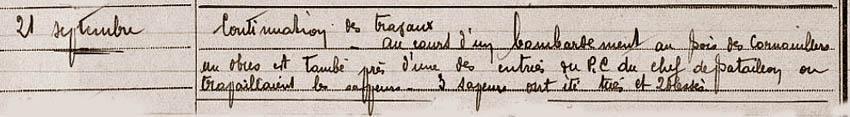 21 septembre Continuation des travaux
au cours d'un bombardement au bois des Cornaillers
un obus est tombé près d'une des entrées du P.C du chef de bataillon ou
travaillaient les sapeurs. 3 sapeurs ont été tués et 2 blessés